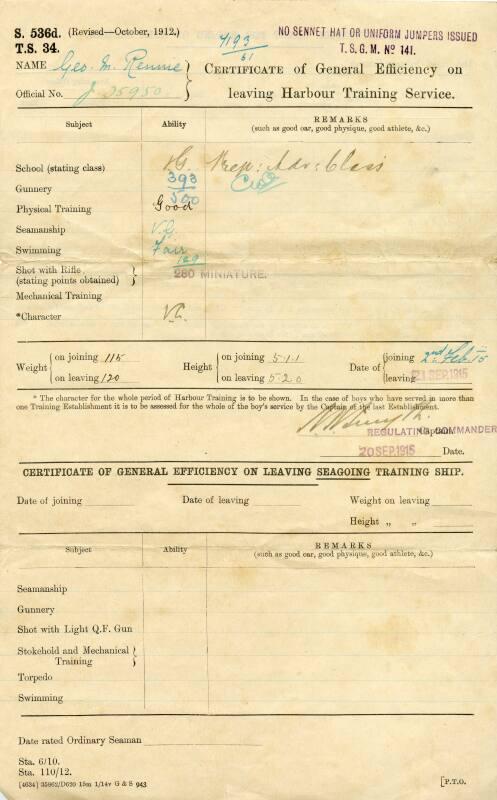 S. 536d. (Revised—October, 1912.)
T.S. 34.
4193
51
NO SENNET HAT OR UNIFORM JUMPERS ISSUED
T.S.G.M. Nº 141.
NAME Geo. M. Rennie
Official No. J 35950
CERTIFICATE of General Efficiency on
leaving Harbour Training Service.
Subject Ability REMARKS
(such as good oar, good physique, good athlete, &c.)
School (stating class) VG Prep: Adv: Class
Gunnery 393
500
Physical Training Good
Seamanship V.G.
Swimming Fair
Shot with Rifle
(stating points obtained) 129
280 MINIATURE.
Mechanical Training
*Character V.G.
Weight on joining 115
on leaving 120
Height on joining 5·1·1
on leaving 5·2·0
Date of joining 2nd Feb 15
leaving 21 SEP. 1915
* The character for the whole period of Harbour Training is to be shown. In the case of boys who have served in more than
one Training Establishment it is to be assessed for the whole of the boy's service by the Captain of the last Establishment.
REGULATING COMMANDER
Captain.
20 SEP. 1915 Date.
CERTIFICATE OF GENERAL EFFICIENCY ON LEAVING SEAGOING TRAINING SHIP.
Date of joining Date of leaving Weight on leaving
Height „ „
Subject Ability REMARKS
(such as good oar, good physique, good athlete, &c.)
Seamanship
Gunnery
Shot with Light Q.F. Gun
Stokehold and Mechanical
Training
Torpedo
Swimming
Date rated Ordinary Seaman
Sta. 6/10.
Sta. 110/12.
[4634] 35862/D620 15m 1/14v G & S 943
[P.T.O.